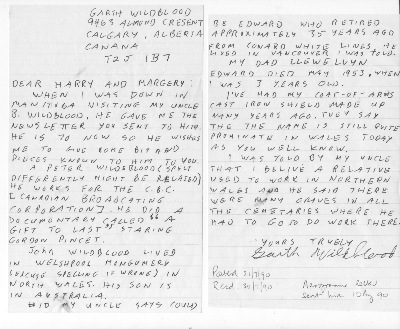 GARTH WILDBLOOD
9463 ALMOND CRESENT
CALGARY, ALBERIA
CANANA
T2J 1B7
DEAR HARRY AND MARGERY:
WHEN I WAS DOWN IN
MANITIBA VISITING MY UNCLE
B. WILDBLOOD, HE GAVE ME THE
NEWSLETTER YOU SENT TO HIM
HE IS TO NOW SO HE WISHES
ME TO GIVE SOME BIT AND
PIECES KNOWN TO HIM TO YOU.
A PETER WILDBLOOD (SPELT
DIFFERENTLY MIGHT BE RELATED)
HE WORKS FOR THE C.B.C.
[CANADIAN BROADCASTING
CORPORATION] HE DID A
DOCUMENTARY CALLED "A
GIFT TO LAST" STARING
GORDON PINCET.
JOHN WILDBLOOD LIVED
IN WELSHPOOL MONGOMERY
(EXCUSE SPELLING IF WRONG) IN
NORTH WALES. HIS SON IS
IN AUSTRALIA.
MY UNCLE SAYS COULD
BE EDWARD WHO RETIRED
APPROXIMATELY 35 YEARS AGO
FROM CONARD WHITE LINES. HE
LIVED IN VANCOUVER I WAS TOLD.
MY DAD LLEWELLYN
EDWARD DIED MAY 1953, WHEN
I WAS 7 YEARS OLD.
I'VE HAD MY COAT-OF-ARMS
CAST IRON SHIELD MADE UP
MANY YEARS AGO. THEY SAY
THE THE NAME IS STILL QUITE
IN WALES TODAY
AS YOU WELL KNOW.
I WAS TOLD BY MY UNCLE
THAT I BELIVE A RELATIVE
USED TO WORK IN NORTHERN
WALES AND HE SAID THERE
WERE MANY GRAVES IN ALL
THE CEMETARIES WHERE HE
HAD TO GO TO DO WORK THERE.
YOURS TRUELY
Garth Wildblood
Posted 21/1/90
Recd 30/1/90
sent him 90